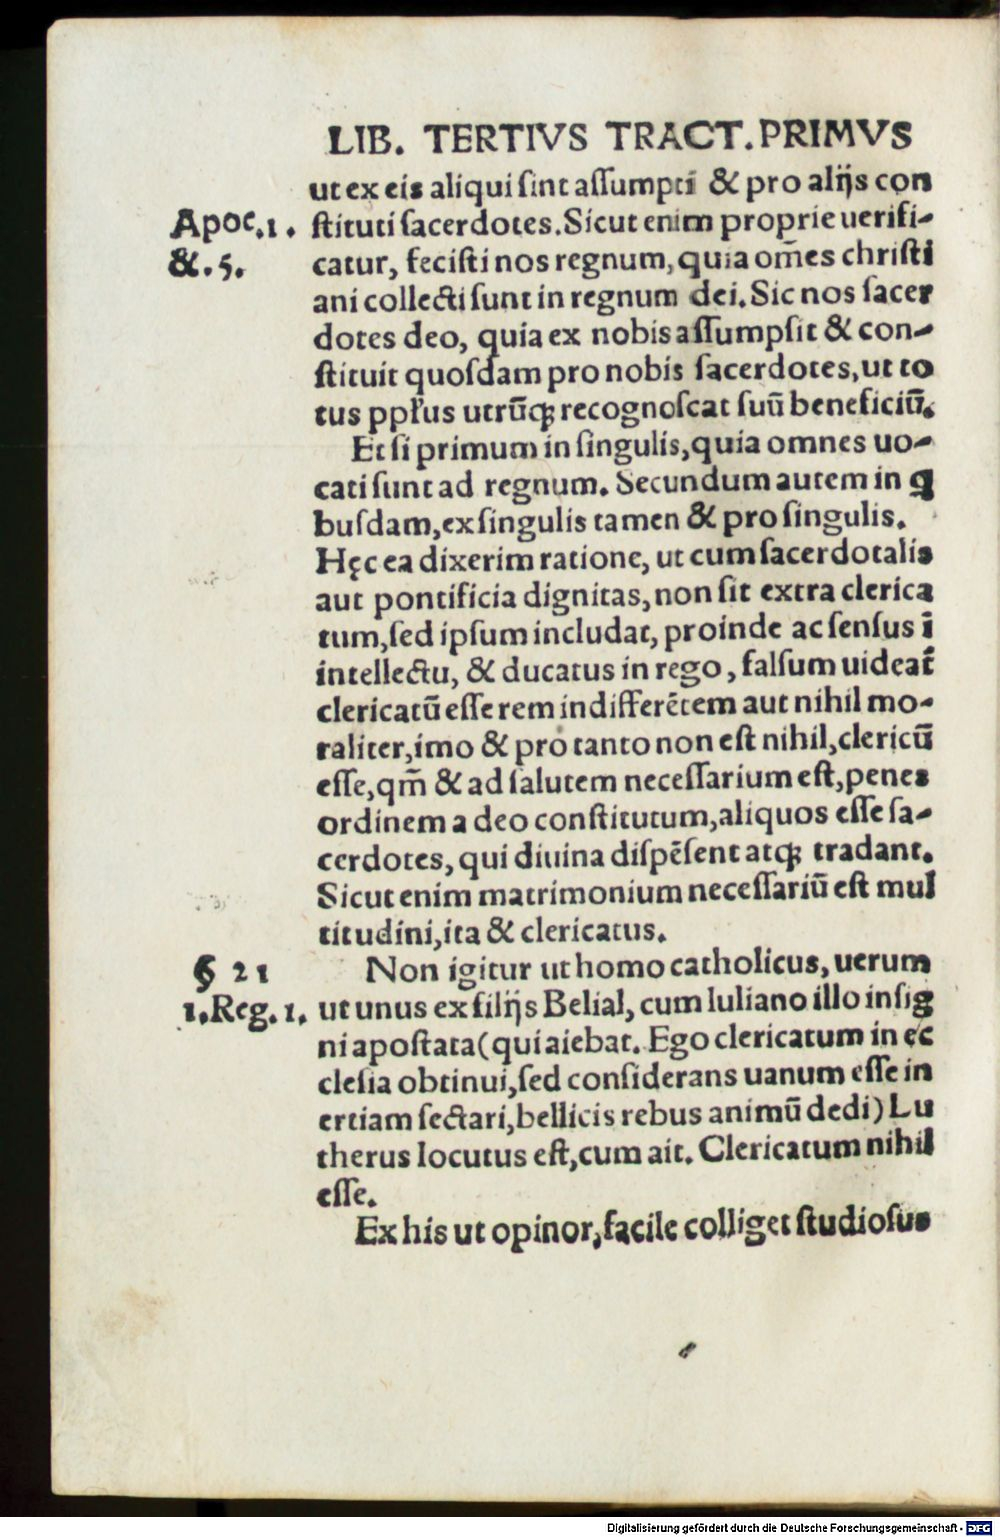 LIB. TERTIVS TRACT. PRIMVS
ut ex eis aliqui sint assumpti & pro alijs con
Apoc. 1. stituti sacerdotes. Sicut enim proprie uerifi-
&. 5. catur, fecisti nos regnum, quia om̄es christi
ani collecti sunt in regnum dei. Sic nos sacer
dotes deo, quia ex nobis assumpsit & con-
stituit quosdam pro nobis sacerdotes, ut to
tus ppl̄us utrūqꝫ recognoscat suū beneficiū.
Et si primum in singulis, quia omnes uo-
cati sunt ad regnum. Secundum autem in ꝗ
busdam, ex singulis tamen & pro singulis.
Hęc ea dixerim ratione, ut cum sacerdotalis
aut pontificia dignitas, non sit extra clerica
tum, sed ipsum includat, proinde ac sensus ī
intellectu, & ducatus in rego, falsum uideat᷑
clericatū esse rem indifferētem aut nihil mo-
raliter, imo & pro tanto non est nihil, clericū
esse, qm̄ & ad salutem necessarium est, penes
ordinem a deo constitutum, aliquos esse sa-
cerdotes, qui diuina dispēsent atqꝫ tradant.
Sicut enim matrimonium necessariū est mul
titudini, ita & clericatus.
§ 21 Non igitur ut homo catholicus, uerum
1. Reg. 1. ut unus ex filijs Belial, cum Iuliano illo insig
ni apostata (qui aiebat. Ego clericatum in ec
clesia obtinui, sed considerans uanum esse in
ertiam sectari, bellicis rebus animū dedi) Lu
therus locutus est, cum ait. Clericatum nihil
esse.
Ex his ut opinor, facile colliget studiosus
Digitalisierung gefördert durch die Deutsche Forschungsgemeinschaft - DFG